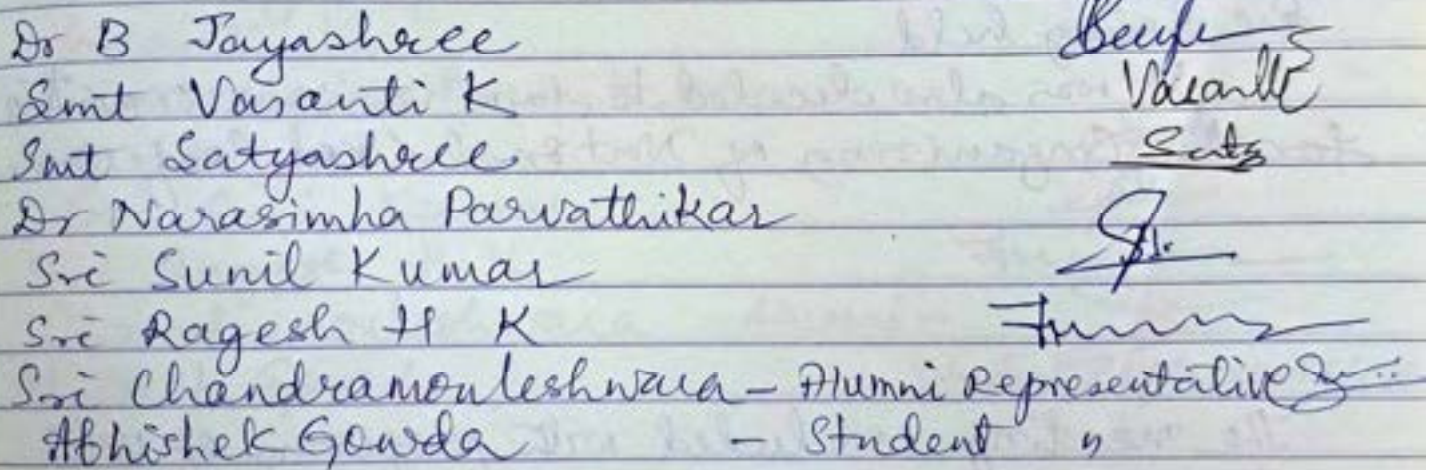 Dr B Jayashree
Smt Vasanti K Vasanti
Smt Satyashree
Dr Narasimha Parvathikar
Sri Sunil Kumar
Sri Ragesh H K
Sri Chandramouleshwara - Alumni Representative
Abhishek Gowda - Student "